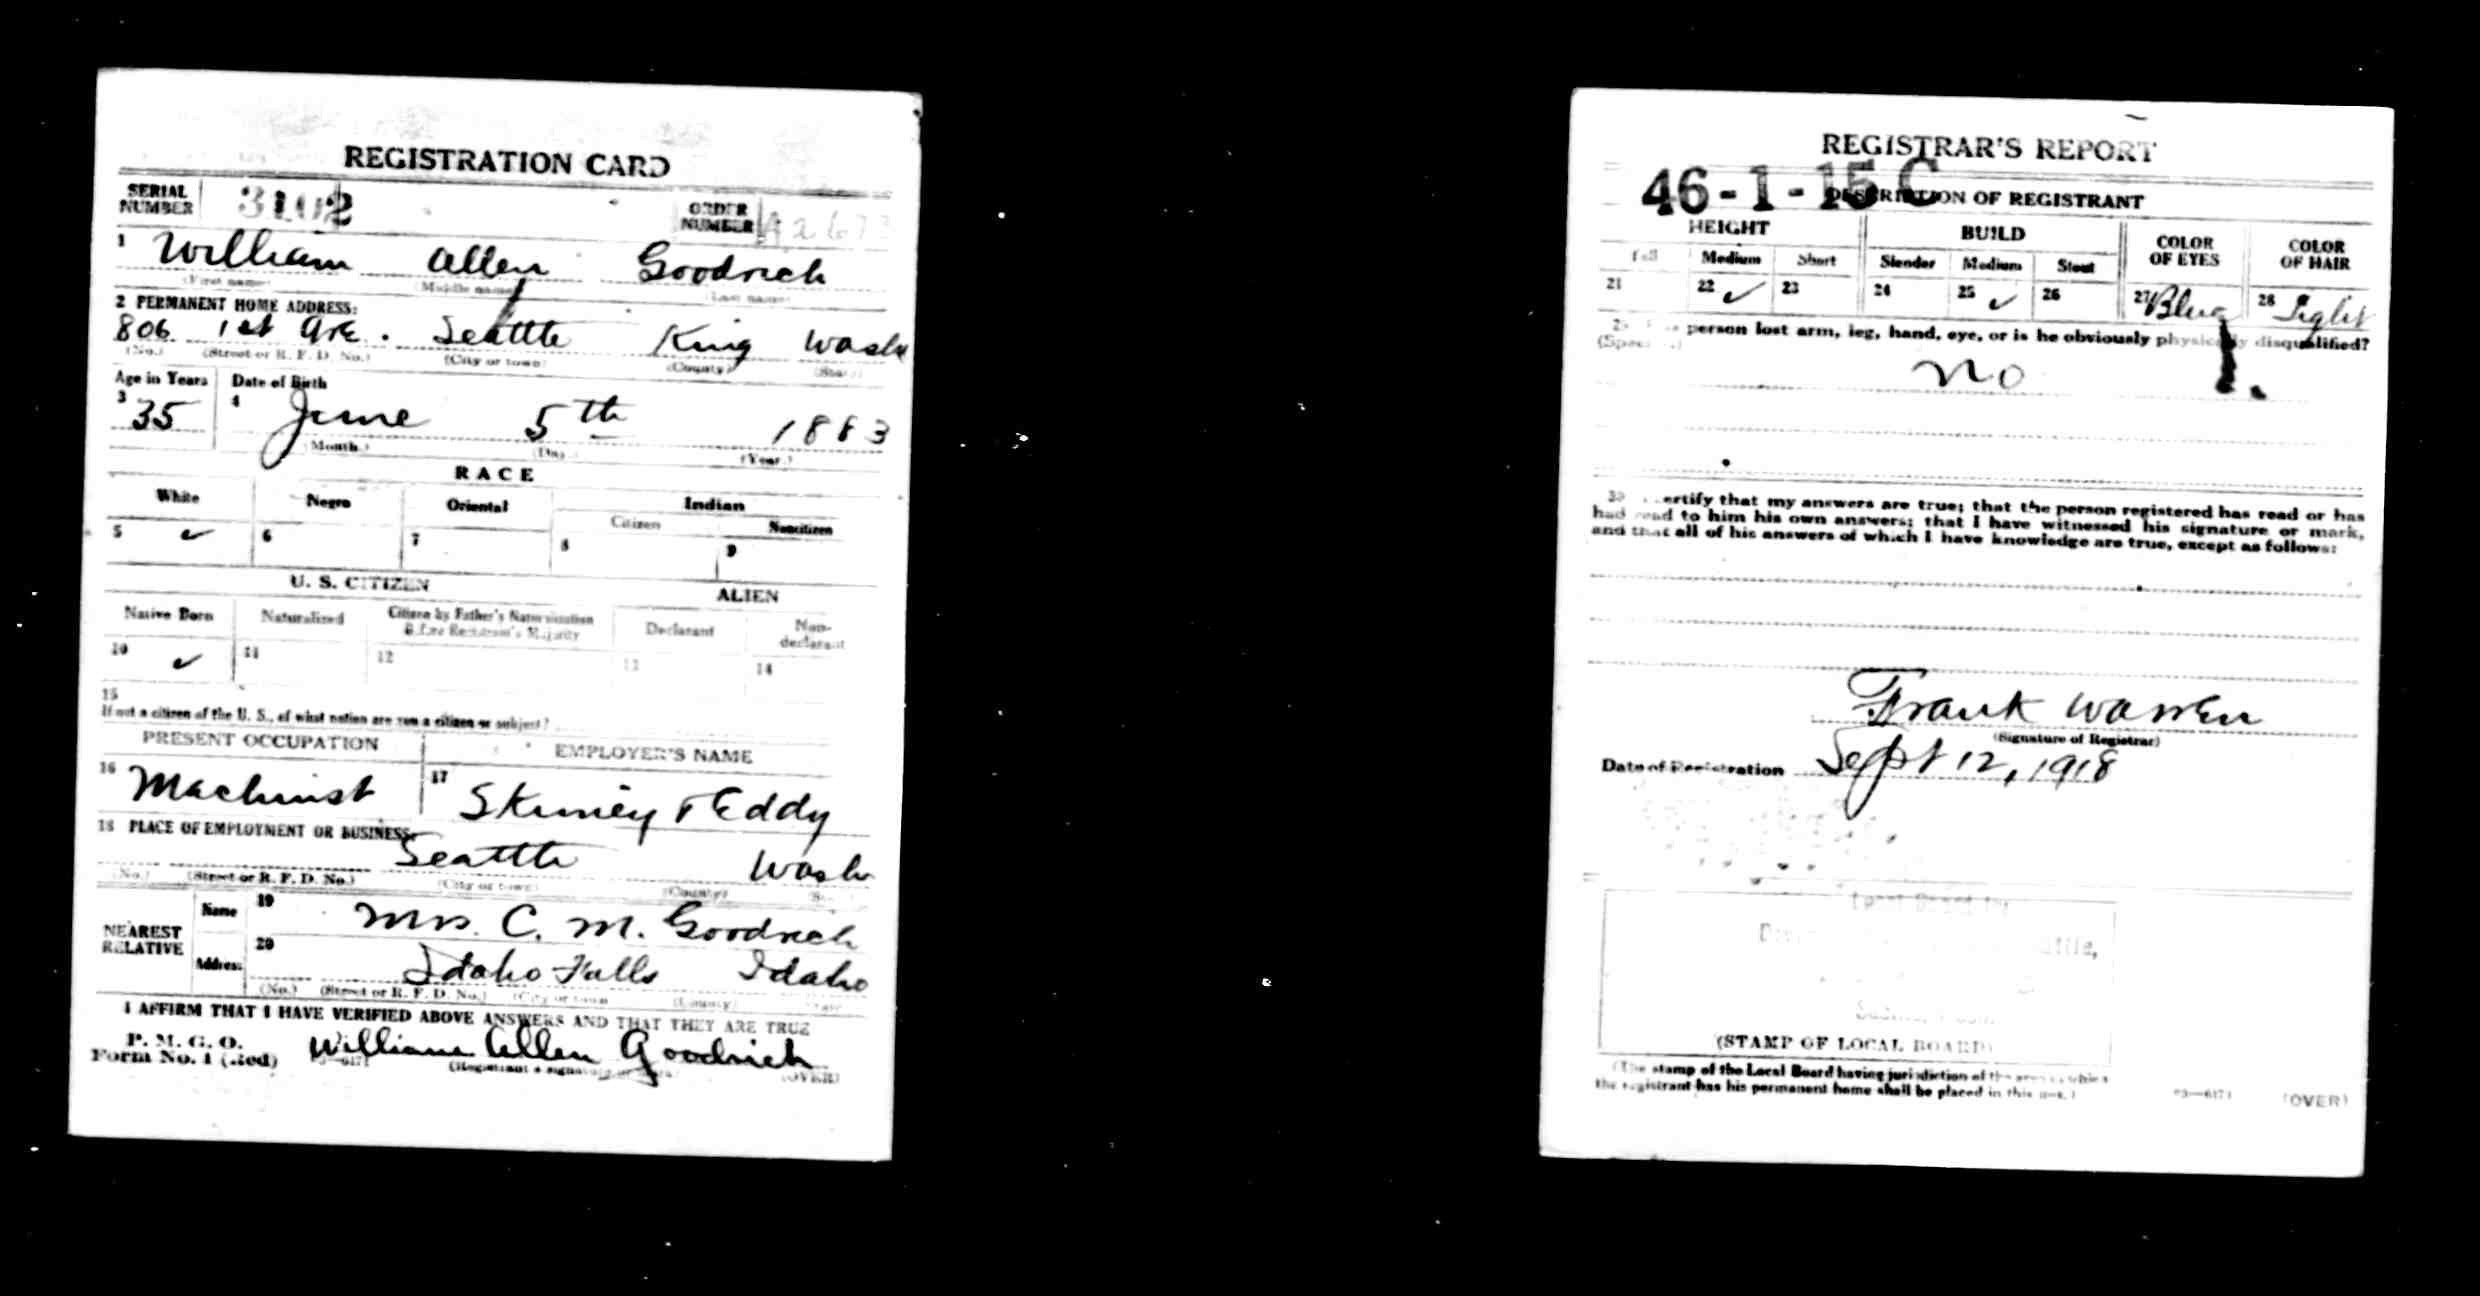 REGISTRATION CARD
SERIAL NUMBER 3102 ORDER NUMBER A2673
1 William Allen Goodrich
(First name) (Middle name) (Last name)
2 PERMANENT HOME ADDRESS:
806 1st Ave. Seattle King Wash
(No.) (Street or R. F. D. No.) (City or town) (County) (State)
Age in Years Date of Birth
3 35 4 June 5th 1883
(Month.) (Day.) (Year.)
RACE
White Negro Oriental Indian
Citizen Noncitizen
5 ✓ 6 7 8 9
U. S. CITIZEN ALIEN
Native Born Naturalized Citizen by Father's Naturalization Before Registrant's Majority Declarant Non-declarant
10 ✓ 11 12 13 14
15
If not a citizen of the U. S., of what nation are you a citizen or subject?
PRESENT OCCUPATION EMPLOYER'S NAME
16 Machinist 17 Skinney & Eddy
18 PLACE OF EMPLOYMENT OR BUSINESS:
Seattle Wash
(No.) (Street or R. F. D. No.) (City or town) (County)
NEAREST RELATIVE
Name 19 Mrs. C. M. Goodrich
Address 20 Idaho Falls Idaho
(No.) (Street or R. F. D. No.) (City or town) (County) (State)
I AFFIRM THAT I HAVE VERIFIED ABOVE ANSWERS AND THAT THEY ARE TRUE
P. M. G. O.
Form No. 1 (Red) William Allen Goodrich
(Registrant's signature or mark) (OVER)
REGISTRAR'S REPORT
46-1-15 C
DESCRIPTION OF REGISTRANT
HEIGHT BUILD COLOR OF EYES COLOR OF HAIR
Tall Medium Short Slender Medium Stout
21 22 ✓ 23 24 25 ✓ 26 27 Blue 28 Light
person lost arm, leg, hand, eye, or is he obviously physically disqualified?
(Specify.)
no
30 certify that my answers are true; that the person registered has read or has
had read to him his own answers; that I have witnessed his signature or mark,
and that all of his answers of which I have knowledge are true, except as follows:
Frank Warren
(Signature of Registrar)
Date of Registration Sept 12, 1918
Local Board for
(STAMP OF LOCAL BOARD)
(The stamp of the Local Board having jurisdiction of the area in which
the registrant has his permanent home shall be placed in this box.)
(OVER)